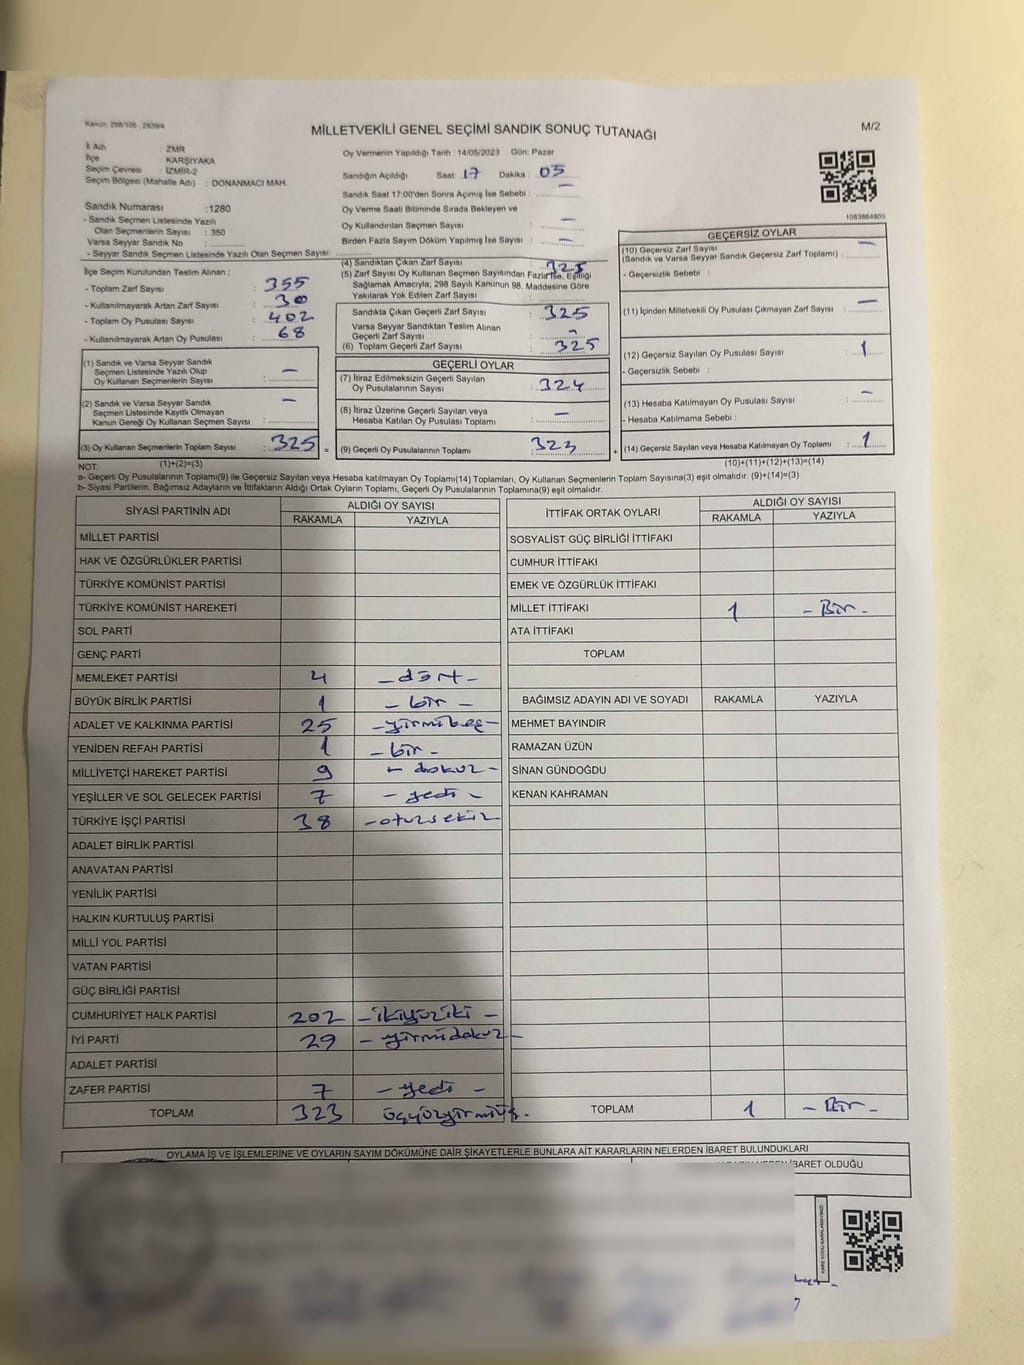 Kanun; 298/106 , 2839/4
MİLLETVEKİLİ GENEL SEÇİMİ SANDIK SONUÇ TUTANAĞI
M/2
İl Adı : ZMR
İlçe : KARŞIYAKA
Seçim Çevresi : İZMİR-2
Seçim Bölgesi (Mahalle Adı) : DONANMACI MAH.
Sandık Numarası :1280
- Sandık Seçmen Listesinde Yazılı
Olan Seçmenlerin Sayısı : 350
Varsa Seyyar Sandık No :
- Seyyar Sandık Seçmen Listesinde Yazılı Olan Seçmen Sayısı:
İlçe Seçim Kurulundan Teslim Alınan :
- Toplam Zarf Sayısı : 355
- Kullanılmayarak Artan Zarf Sayısı : 30
- Toplam Oy Pusulası Sayısı : 402
- Kullanılmayarak Artan Oy Pusulası : 68
(1) Sandık ve Varsa Seyyar Sandık
Seçmen Listesinde Yazılı Olup
Oy Kullanan Seçmenlerin Sayısı : —
(2) Sandık ve Varsa Seyyar Sandık
Seçmen Listesinde Kayıtlı Olmayan
Kanun Gereği Oy Kullanan Seçmen Sayısı : —
(3) Oy Kullanan Seçmenlerin Toplam Sayısı : 325 =
(1)+(2)=(3)
Oy Vermenin Yapıldığı Tarih : 14/05/2023 Gün: Pazar
Sandığın Açıldığı Saat : 17 Dakika : 05
Sandık Saat 17:00'den Sonra Açımış İse Sebebi : —
Oy Verme Saati Bitiminde Sırada Bekleyen ve
Oy Kullandırılan Seçmen Sayısı : —
Birden Fazla Sayım Döküm Yapılmış İse Sayısı : —
(4) Sandıktan Çıkan Zarf Sayısı : 325
(5) Zarf Sayısı Oy Kullanan Seçmen Sayısından Fazla İse, Eşitliği
Sağlamak Amacıyla; 298 Sayılı Kanunun 98. Maddesine Göre
Yakılarak Yok Edilen Zarf Sayısı :
Sandıkta Çıkan Geçerli Zarf Sayısı : 325
Varsa Seyyar Sandıktan Teslim Alınan
Geçerli Zarf Sayısı : -
(6) Toplam Geçerli Zarf Sayısı : 325
GEÇERLİ OYLAR
(7) İtiraz Edilmeksizin Geçerli Sayılan
Oy Pusulalarının Sayısı : 324
(8) İtiraz Üzerine Geçerli Sayılan veya
Hesaba Katılan Oy Pusulası Toplamı : —
(9) Geçerli Oy Pusulalarının Toplamı : 323 +
1083864805
GEÇERSİZ OYLAR
(10) Geçersiz Zarf Sayısı
(Sandık ve Varsa Seyyar Sandık Geçersiz Zarf Toplamı) : —
- Geçersizlik Sebebi :
(11) İçinden Milletvekili Oy Pusulası Çıkmayan Zarf Sayısı : —
(12) Geçersiz Sayılan Oy Pusulası Sayısı : 1
- Geçersizlik Sebebi :
(13) Hesaba Katılmayan Oy Pusulası Sayısı : —
- Hesaba Katılmama Sebebi :
(14) Geçersiz Sayılan veya Hesaba Katılmayan Oy Toplamı : 1
(10)+(11)+(12)+(13)=(14)
NOT:
a- Geçerli Oy Pusulalarının Toplamı(9) ile Geçersiz Sayılan veya Hesaba katılmayan Oy Toplamı(14) Toplamları, Oy Kullanan Seçmenlerin Toplam Sayısına(3) eşit olmalıdır. (9)+(14)=(3)
b- Siyasi Partilerin, Bağımsız Adayların ve İttifakların Aldığı Ortak Oyların Toplamı, Geçerli Oy Pusulalarının Toplamına(9) eşit olmalıdır.
SİYASİ PARTİNİN ADI ALDIĞI OY SAYISI
RAKAMLA YAZIYLA
MİLLET PARTİSİ
HAK VE ÖZGÜRLÜKLER PARTİSİ
TÜRKİYE KOMÜNİST PARTİSİ
TÜRKİYE KOMÜNİST HAREKETİ
SOL PARTİ
GENÇ PARTİ
MEMLEKET PARTİSİ 4 - dört -
BÜYÜK BİRLİK PARTİSİ 1 - bir -
ADALET VE KALKINMA PARTİSİ 25 - yirmibeş -
YENİDEN REFAH PARTİSİ 1 - bir -
MİLLİYETÇİ HAREKET PARTİSİ 9 - dokuz -
YEŞİLLER VE SOL GELECEK PARTİSİ 7 - yedi -
TÜRKİYE İŞÇİ PARTİSİ 38 - otuzsekiz
ADALET BİRLİK PARTİSİ
ANAVATAN PARTİSİ
YENİLİK PARTİSİ
HALKIN KURTULUŞ PARTİSİ
MİLLİ YOL PARTİSİ
VATAN PARTİSİ
GÜÇ BİRLİĞİ PARTİSİ
CUMHURİYET HALK PARTİSİ 202 - ikiyüziki -
İYİ PARTİ 29 - yirmidokuz -
ADALET PARTİSİ
ZAFER PARTİSİ 7 - yedi -
TOPLAM 323 üçyüzyirmiüç -
İTTİFAK ORTAK OYLARI ALDIĞI OY SAYISI
RAKAMLA YAZIYLA
SOSYALİST GÜÇ BİRLİĞİ İTTİFAKI
CUMHUR İTTİFAKI
EMEK VE ÖZGÜRLÜK İTTİFAKI
MİLLET İTTİFAKI 1 - Bir -
ATA İTTİFAKI
TOPLAM
BAĞIMSIZ ADAYIN ADI VE SOYADI RAKAMLA YAZIYLA
MEHMET BAYINDIR
RAMAZAN ÜZÜN
SİNAN GÜNDOĞDU
KENAN KAHRAMAN
TOPLAM 1 - Bir -
OYLAMA İŞ VE İŞLEMLERİNE VE OYLARIN SAYIM DÖKÜMÜNE DAİR ŞİKAYETLERLE BUNLARA AİT KARARLARIN NELERDEN İBARET BULUNDUKLARI
İBARET OLDUĞU